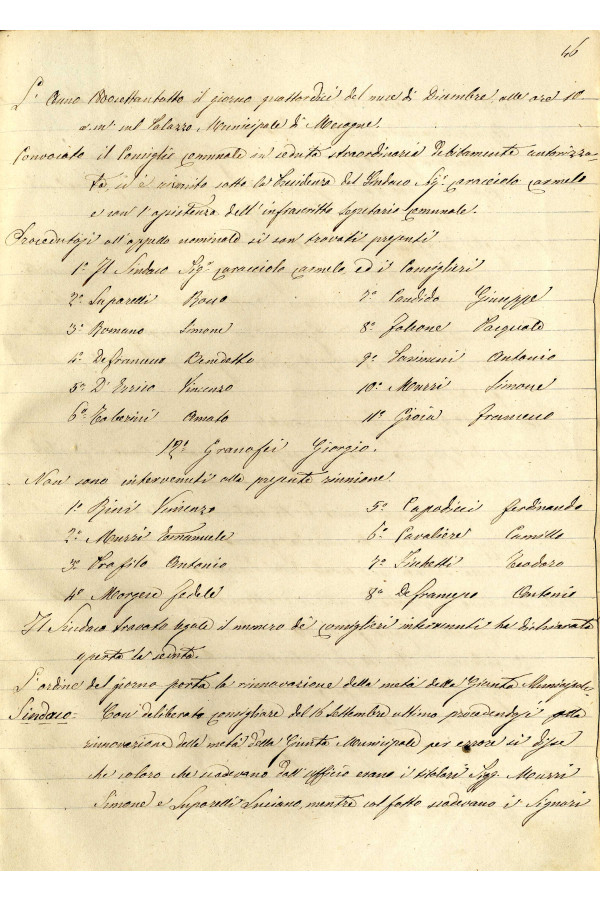 46
L'Anno 18ocettantotto il giorno quattordici del mese di Dicembre, alle ore 10
a.m. nel Palazzo Municipale di Mesagne.
Convocato il Consiglio comunale in seduta straordinaria debitamente autorizza-
ta, si è riunito sotto la Presidenza del Sindaco Sigr Caracciolo Carmelo
e con l'assistenza dell'infrascritto segretario comunale.
Procedutosi all'appello nominale si son trovati presenti
1º Il Sindaco Sigr Caracciolo Carmelo, ed i Consiglieri
2º Suparelli Rosso 7º Candido Giuseppe
3º Romano Simone 8º Falcone Pasquale
4º Defrancesco Benedetto 9º Antonio
5º D'Enrico Vincenzo 10º Murri Simone
6º Amato 11º Gioia Francesco
12º Granafei Giorgio.
Non sono intervenuti alla presente riunione.
1º Rini Vincenzo 5º Capodieci Ferdinando
2º Murri Emanuele 6º Cavaliere Camillo
3º Profilo Antonio 7º Teodoro
4º Morgese Fedele 8º Defrancesco Antonio
Il Sindaco trovato legale il numero de' consiglieri intervenuti ha dichiarato
aperta la seduta.
L'ordine del giorno porta la rinnovazione della metà della Giunta Municipale.
Sindaco - Con deliberato consigliare del 16 Settembre ultimo procedendosi alla
rinnovazione della metà della Giunta Municipale per errore si disse
che coloro che scadevano dall'ufficio erano i titolari Sigg. Murri
Simone e Suparelli Luciano, mentre col fatto scadevano i Signori